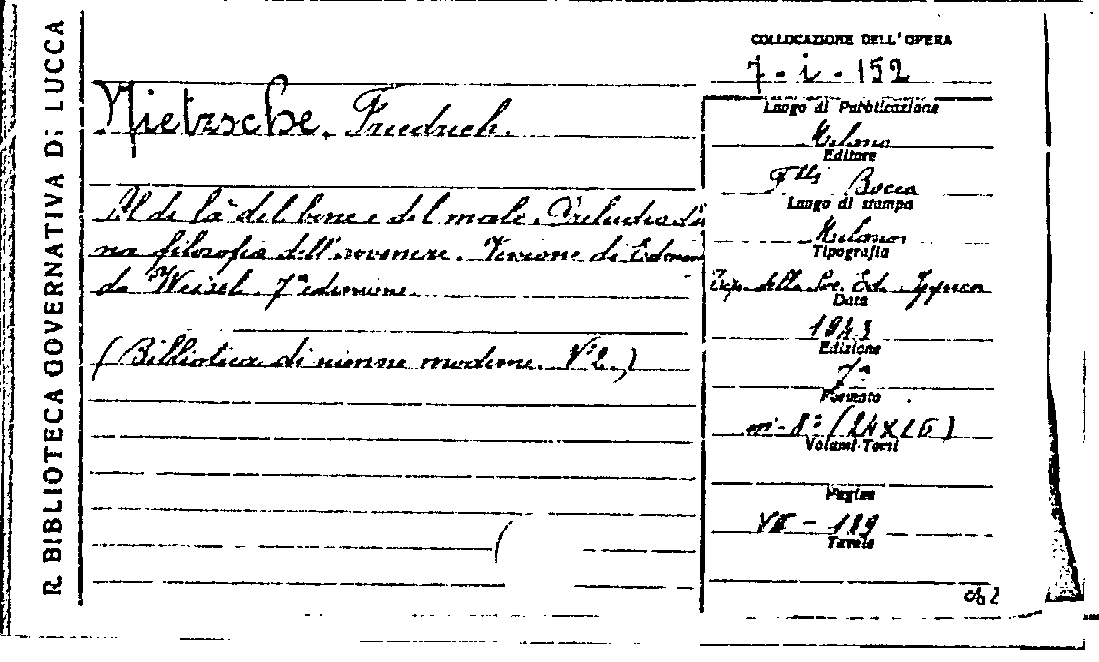 R. BIBLIOTECA GOVERNATIVA DI LUCCA
Nietzsche. Friedrich.
Al di là del bene e del male. Preludio di
na filosofia dell'avvenire. Versione di Edmon
do Weisel. 7ª edizione.
(Biblioteca di scienze moderne. Nº 2.)
COLLOCAZIONE DELL'OPERA
7 - i - 152
Luogo di Pubblicazione
Milano
Editore
F.lli Bocca
Luogo di stampa
Milano
Tipografia
Tip. della Soc. Ed.
Data
1943
Edizione
7ª
Formato
in-8º (24x16)
Volumi-Tomi
Pagine
VII - 189
Tavole